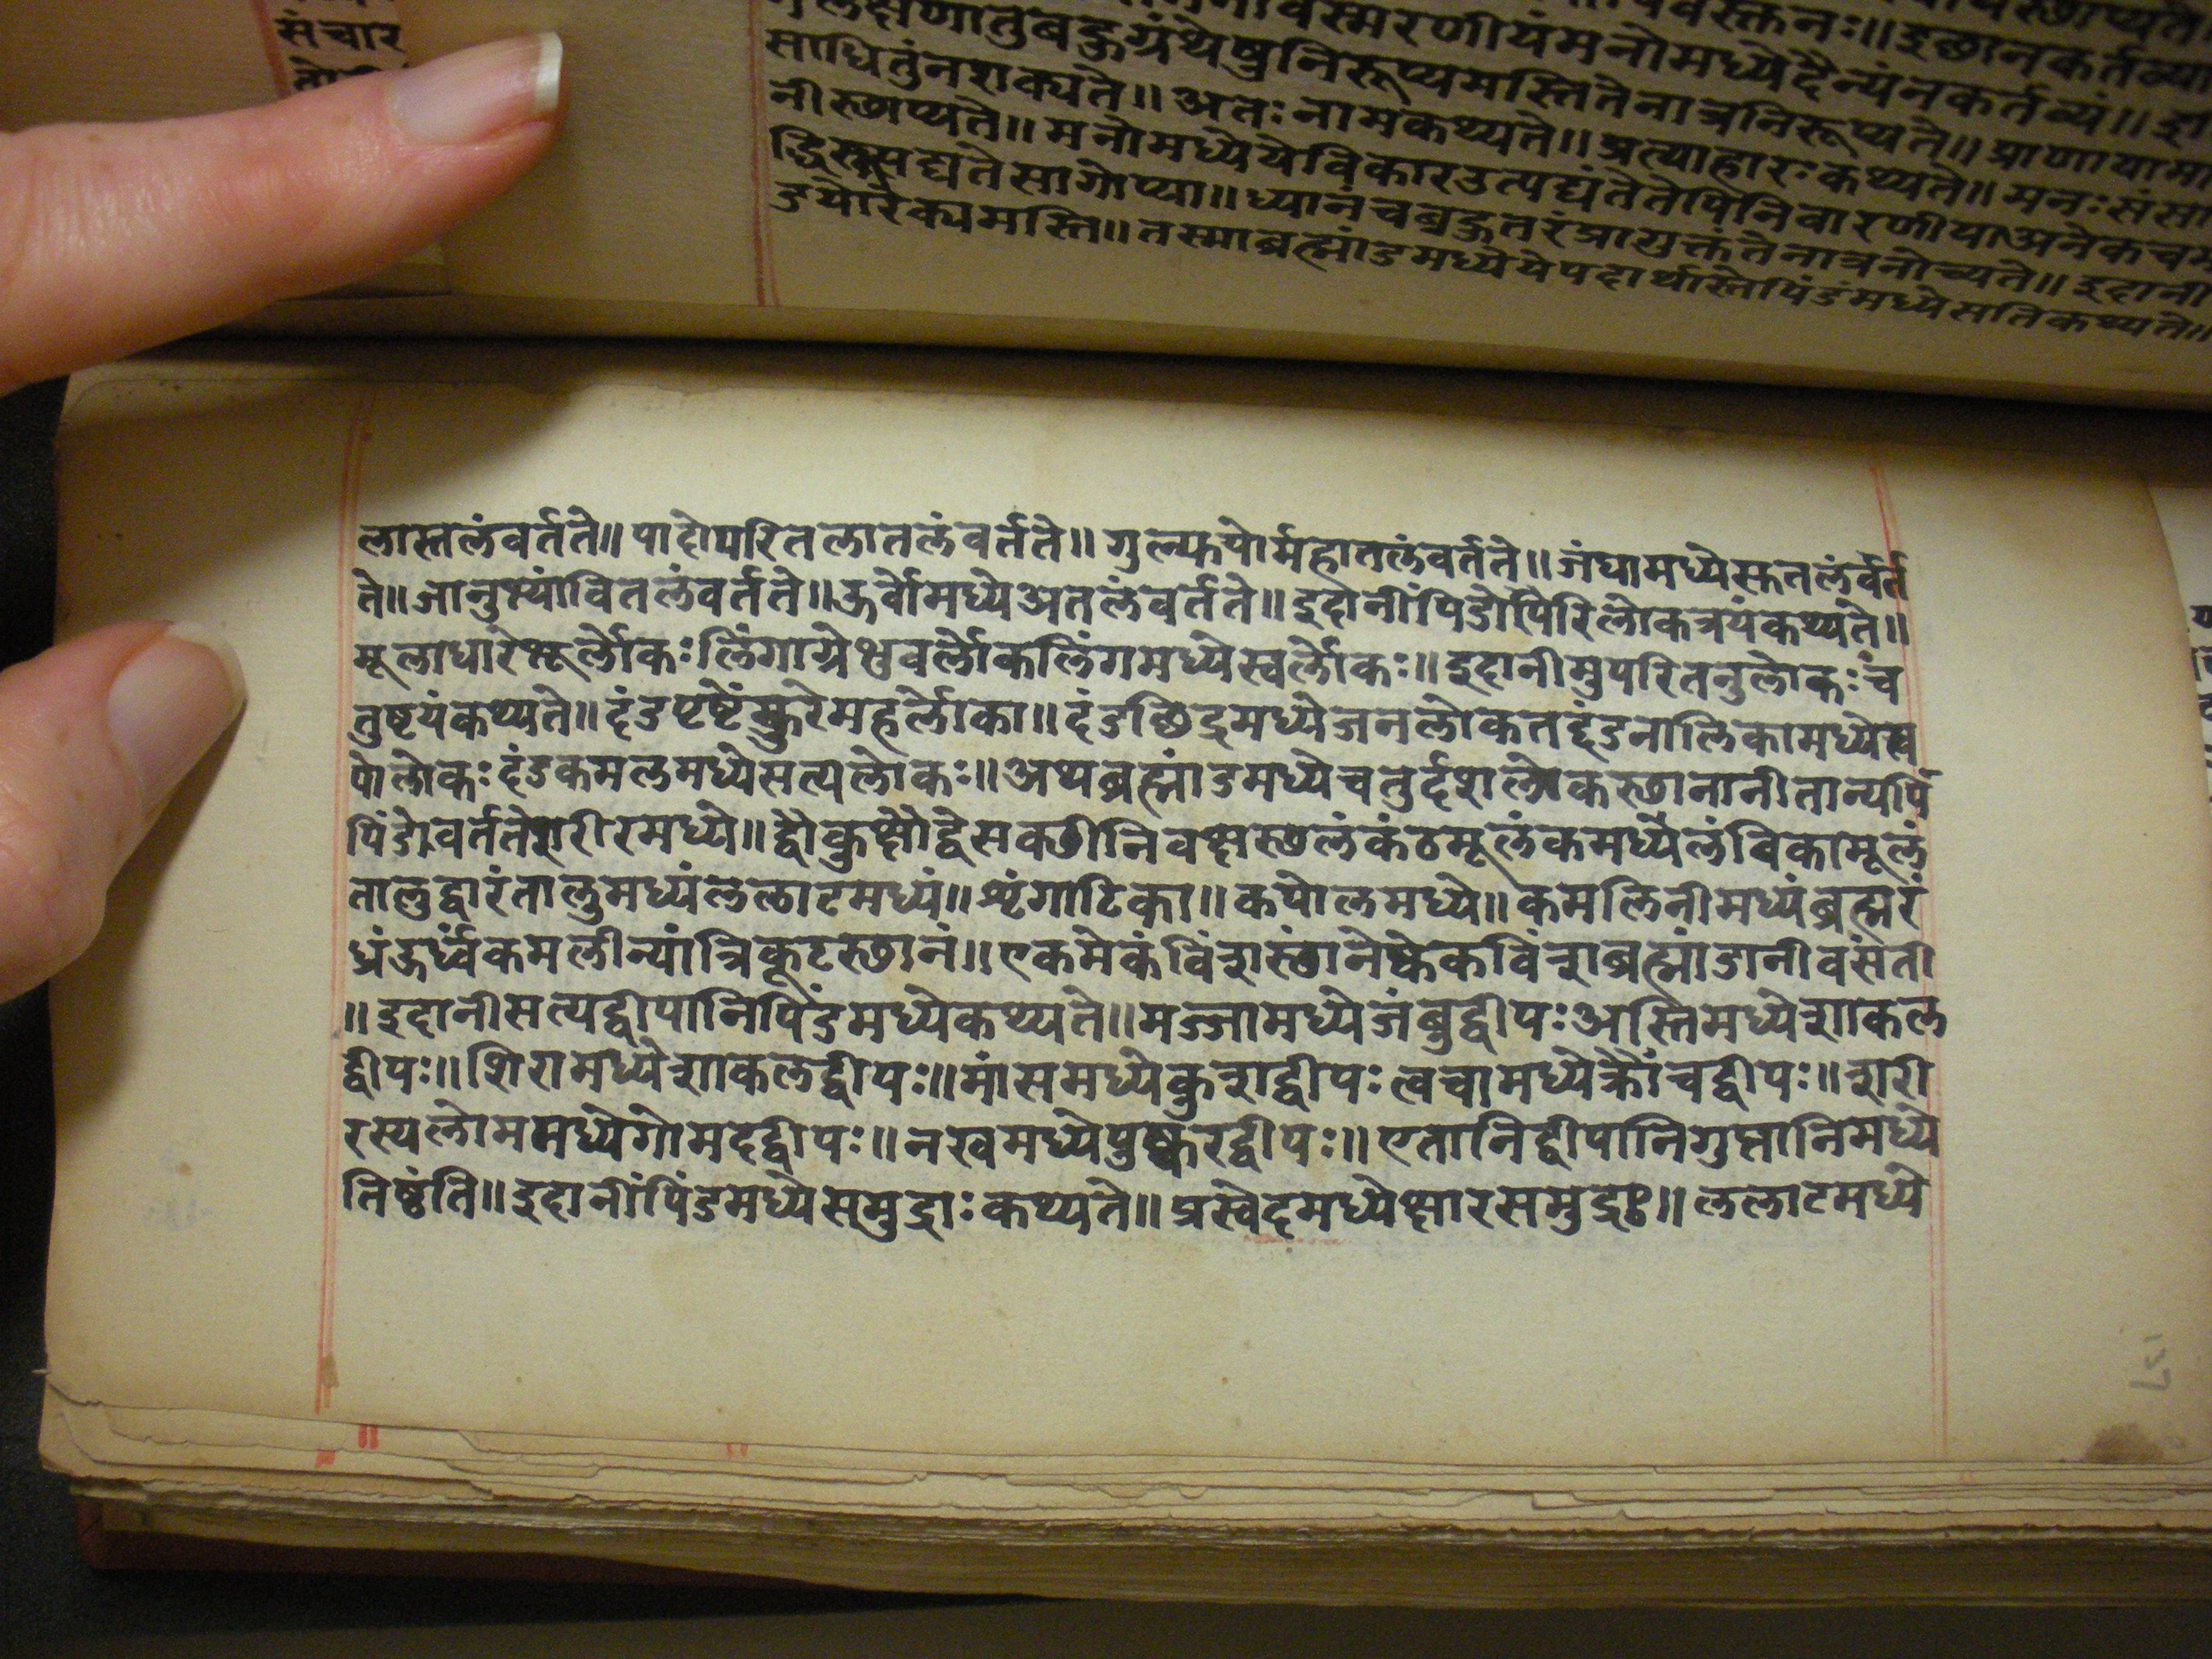 संचार
साधितुंनशक्यते॥ अतः नामकथ्यते॥ प्रत्याहारः कथ्यते॥ मनः संसा
नीस्छाप्यते॥ मनोमध्येयेविकारउत्पद्यंतेतेपिनिवारणीयाअनेकचम
सागोप्या॥ ध्यानंचबहुतरंप्रागुक्तंतेनात्रनोच्यते॥ इदानीं
डयोरैक्यमस्ति॥ तस्माब्रह्मांडमध्येयेपदार्थास्तेपिंडंमध्येसतिकथ्यते॥
लास्तलंवर्तते॥ पादोपरितलातलंवर्तते॥ गुल्फयोर्महातलंवर्तते॥ जंघामध्येस्तृतलंवर्त
ते॥ जानुभ्यांवितलंवर्तते॥ ऊर्वोमध्येअतलंवर्तते॥ इदानींपिंडोपरिलोकत्रयंकथ्यते॥
मूलाधारेभूर्लोकः लिंगाग्रेभुवर्लोकलिंगमध्येस्वर्लोकः॥ इदानीमुपरितनुलोकःच
तुष्टयंकथ्यते॥ दंडपृष्टेंस्कुरेमहर्लोका॥ दंडछिद्रमध्येजनलोकतद्दंडनालिकामध्येस्त
पोलोकः दंडकमलमध्येसत्यलोकः॥ अथब्रह्मांडमध्येचतुर्दशलोकस्छानानीतान्यपि
पिंडेवर्ततेशरीरमध्ये॥ द्वौकुक्षौद्वेसक्छीनिवक्षस्छलंकंठमूलंकमर्ध्यैलंबिकामूलं
तालुद्वारंतालुमध्यंललाटमध्यं॥ शृंगाटिका॥ कपोलमध्ये॥ कमलिनीमध्यंब्रह्मरं
ध्रंऊर्ध्वकमलीन्यांत्रिकूटस्छानं॥ एकमेकंविंशस्छानेष्वेकविंशब्रह्मांडानीवसंती
॥ इदानीसत्यद्वीपानिपिंडमध्येकथ्यते॥ मज्जामध्येजंबुद्वीपः अस्तिमध्येशाकल
द्वीपः॥ शिरामध्येशाकलद्वीपः॥ मांसमध्येकुशद्वीपः त्वचामध्येक्रौंचद्वीपः॥ शरी
रस्यलोममध्येगोमदद्वीपः॥ नखमध्येपुष्करद्वीपः॥ एतानिद्वीपानिगुप्तानिमध्ये
तिष्ठंति॥ इदानींपिंडमध्येसमुद्राः कथ्यते॥ प्रस्वेदमध्येक्षारसमुद्रः॥ ललाटमध्ये
137